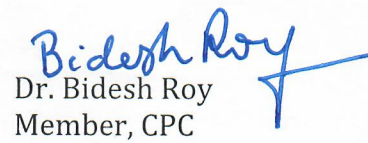 Bidesh Roy
Dr. Bidesh Roy
Member, CPC